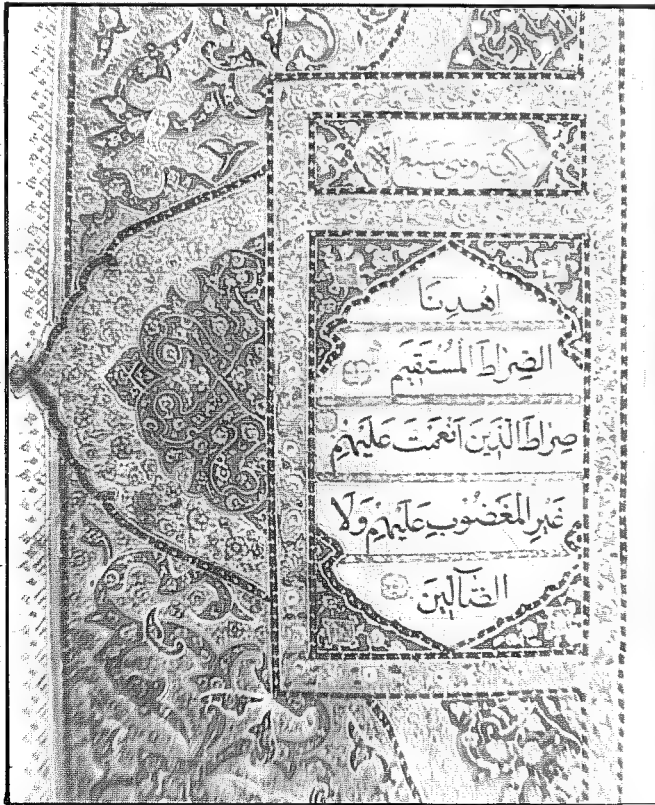 اهْدِنَا
الصِّرَاطَ الْمُسْتَقِيمَ
صِرَاطَ الَّذِينَ أَنْعَمْتَ عَلَيْهِمْ
غَيْرِ الْمَغْضُوبِ عَلَيْهِمْ وَلَا
الضَّآلِّينَ